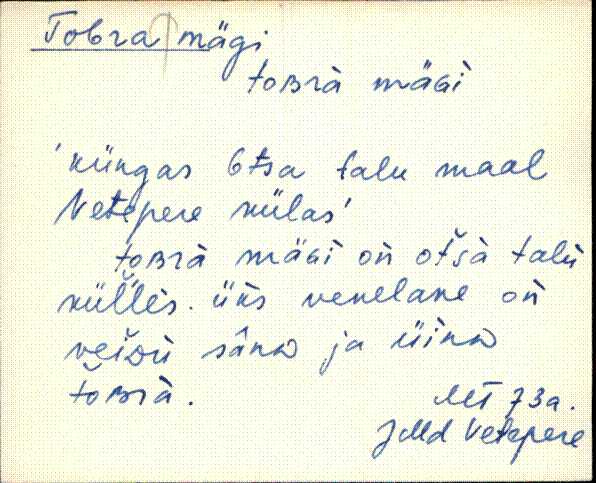 Tobra mägi
toʙrà mäɢì
'küngas Otsa talu maal
Vetepere külas'
toʙrà mäɢì on otsà talù
küll̆es. üks venelane on
sânᴅ ja
toʙrà.
MT 73a.
JMd Vetepere